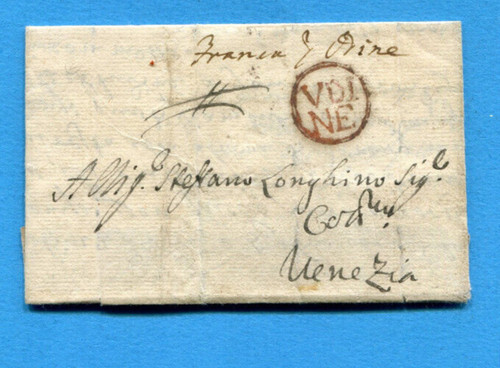 Franca p Udine
VDI
NE
All Sig.r Stefano Longhino Sig.r
Venezia